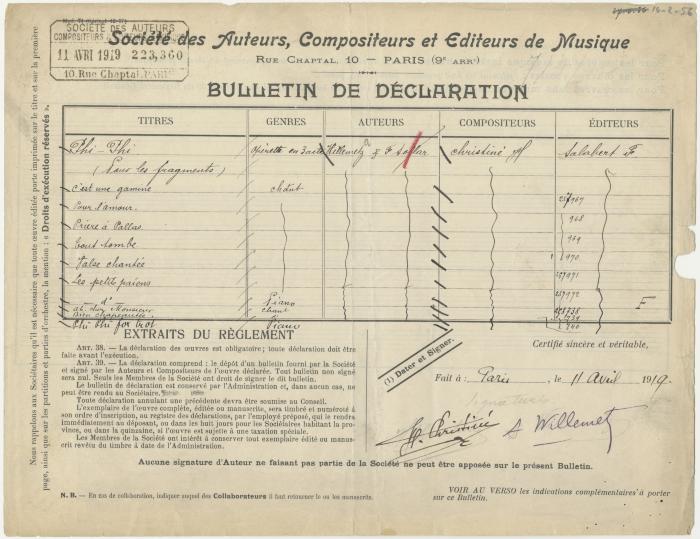 14-2-56
SOCIÉTÉ DES AUTEURS
COMPOSITEURS
11 AVRI 1919 223,360
10. Rue Chaptal. PARIS
Société des Auteurs, Compositeurs et Editeurs de Musique
RUE CHAPTAL, 10 — PARIS (9e ARRt)
BULLETIN DE DÉCLARATION
TITRES GENRES AUTEURS COMPOSITEURS ÉDITEURS
Phi-Phi opérette en 3 actes Willemetz & F Sollar christiné H Salabert F
(Tous les fragments)
C'est une gamine chant
Pour l'amour. 257967
Prière à Pallas 968
Tout tombe 969
Valse chantée 970
Les petits païens 257971
d° Piano 257972 F
Ah. cher Monsieur chant
Bien chapeautée
Phi Phi fox trot Piano
EXTRAITS DU RÈGLEMENT
ART. 38. — La déclaration des œuvres est obligatoire; toute déclaration doit être
faite avant l'exécution.
ART. 39. — La déclaration comprend : le dépôt d'un bulletin fourni par la Société
et signé par les Auteurs et Compositeurs de l'œuvre déclarée. Tout bulletin non signé
sera nul. Seuls les Membres de la Société ont droit de signer le bulletin.
Le bulletin de déclaration est conservé par l'Administration et, dans aucun cas, ne
peut être rendu au Sociétaire.
Toute déclaration annulant une précédente devra être soumise au Conseil.
L'exemplaire de l'œuvre complète, éditée ou manuscrite, sera timbré et numéroté à
son ordre d'inscription, au registre des déclarations, par l'employé préposé, qui le rendra
immédiatement au déposant, ou dans les huit jours pour les Sociétaires habitant la
province, ou dans la quinzaine, si l'œuvre est sujette à une taxation spéciale.
Les Membres de la Société ont intérêt à conserver tout exemplaire édité ou manus-
crit revêtu du timbre à date de l'Administration.
(1) Dater et Signer.
Certifié sincère et véritable,
Fait à : Paris, le 11 Avril 1919.
signatures
H. Christiné A Willemetz
Aucune signature d'Auteur ne faisant pas partie de la Société ne peut être apposée sur le présent Bulletin.
N. B. — En cas de collaboration, indiquer auquel des Collaborateurs il faut retourner le ou les manuscrits.
VOIR AU VERSO les indications complémentaires à porter
sur ce Bulletin.
Nous rappelons aux Sociétaires qu'il est nécessaire que toute œuvre éditée porte imprimée sur le titre et sur la première
page, ainsi que sur les partitions et parties d'orchestre, la mention : « Droits d'exécution réservés ».